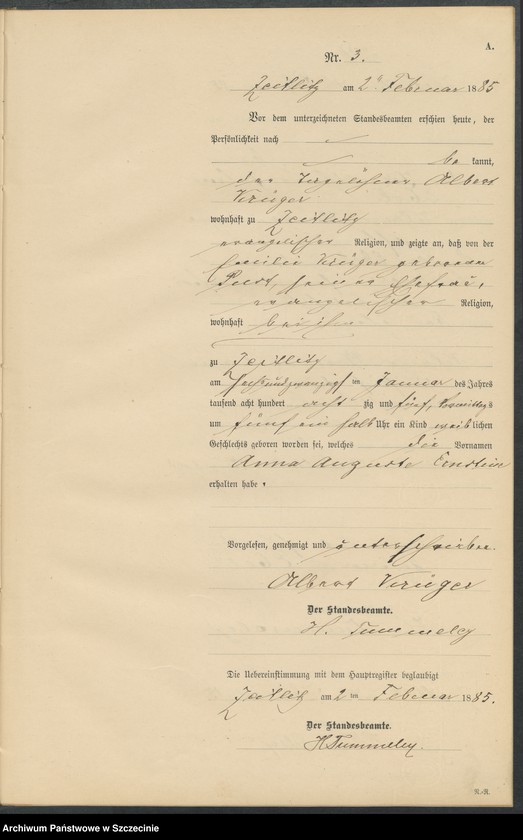 A.
Nr. 3.
Zeitlitz am 2ten Februar 1885
Vor dem unterzeichneten Standesbeamten erschien heute, der
Persönlichkeit nach
be kannt,
der Albert
Krüger
wohnhaft zu Zeitlitz
evangelischer Religion, und zeigte an, daß von der
Krüger geborenen
seiner Ehefrau,
evangelischer Religion,
wohnhaft bei ihm
zu Zeitlitz
am sechsundzwanzigsten Januar des Jahres
tausend acht hundert acht zig und fünf, Vormittags
um fünf ein halb Uhr ein Kind weiblichen
Geschlechts geboren worden sei, welches die Vornamen
Anna Auguste Ernstine
erhalten habe.
Vorgelesen, genehmigt und unterschrieben.
Albert Krüger
Der Standesbeamte.
H. Tummeley
Die Uebereinstimmung mit dem Hauptregister beglaubigt
Zeitlitz am 2ten Februar 1885.
Der Standesbeamte.
H Tummeley.
Archiwum Państwowe w Szczecinie